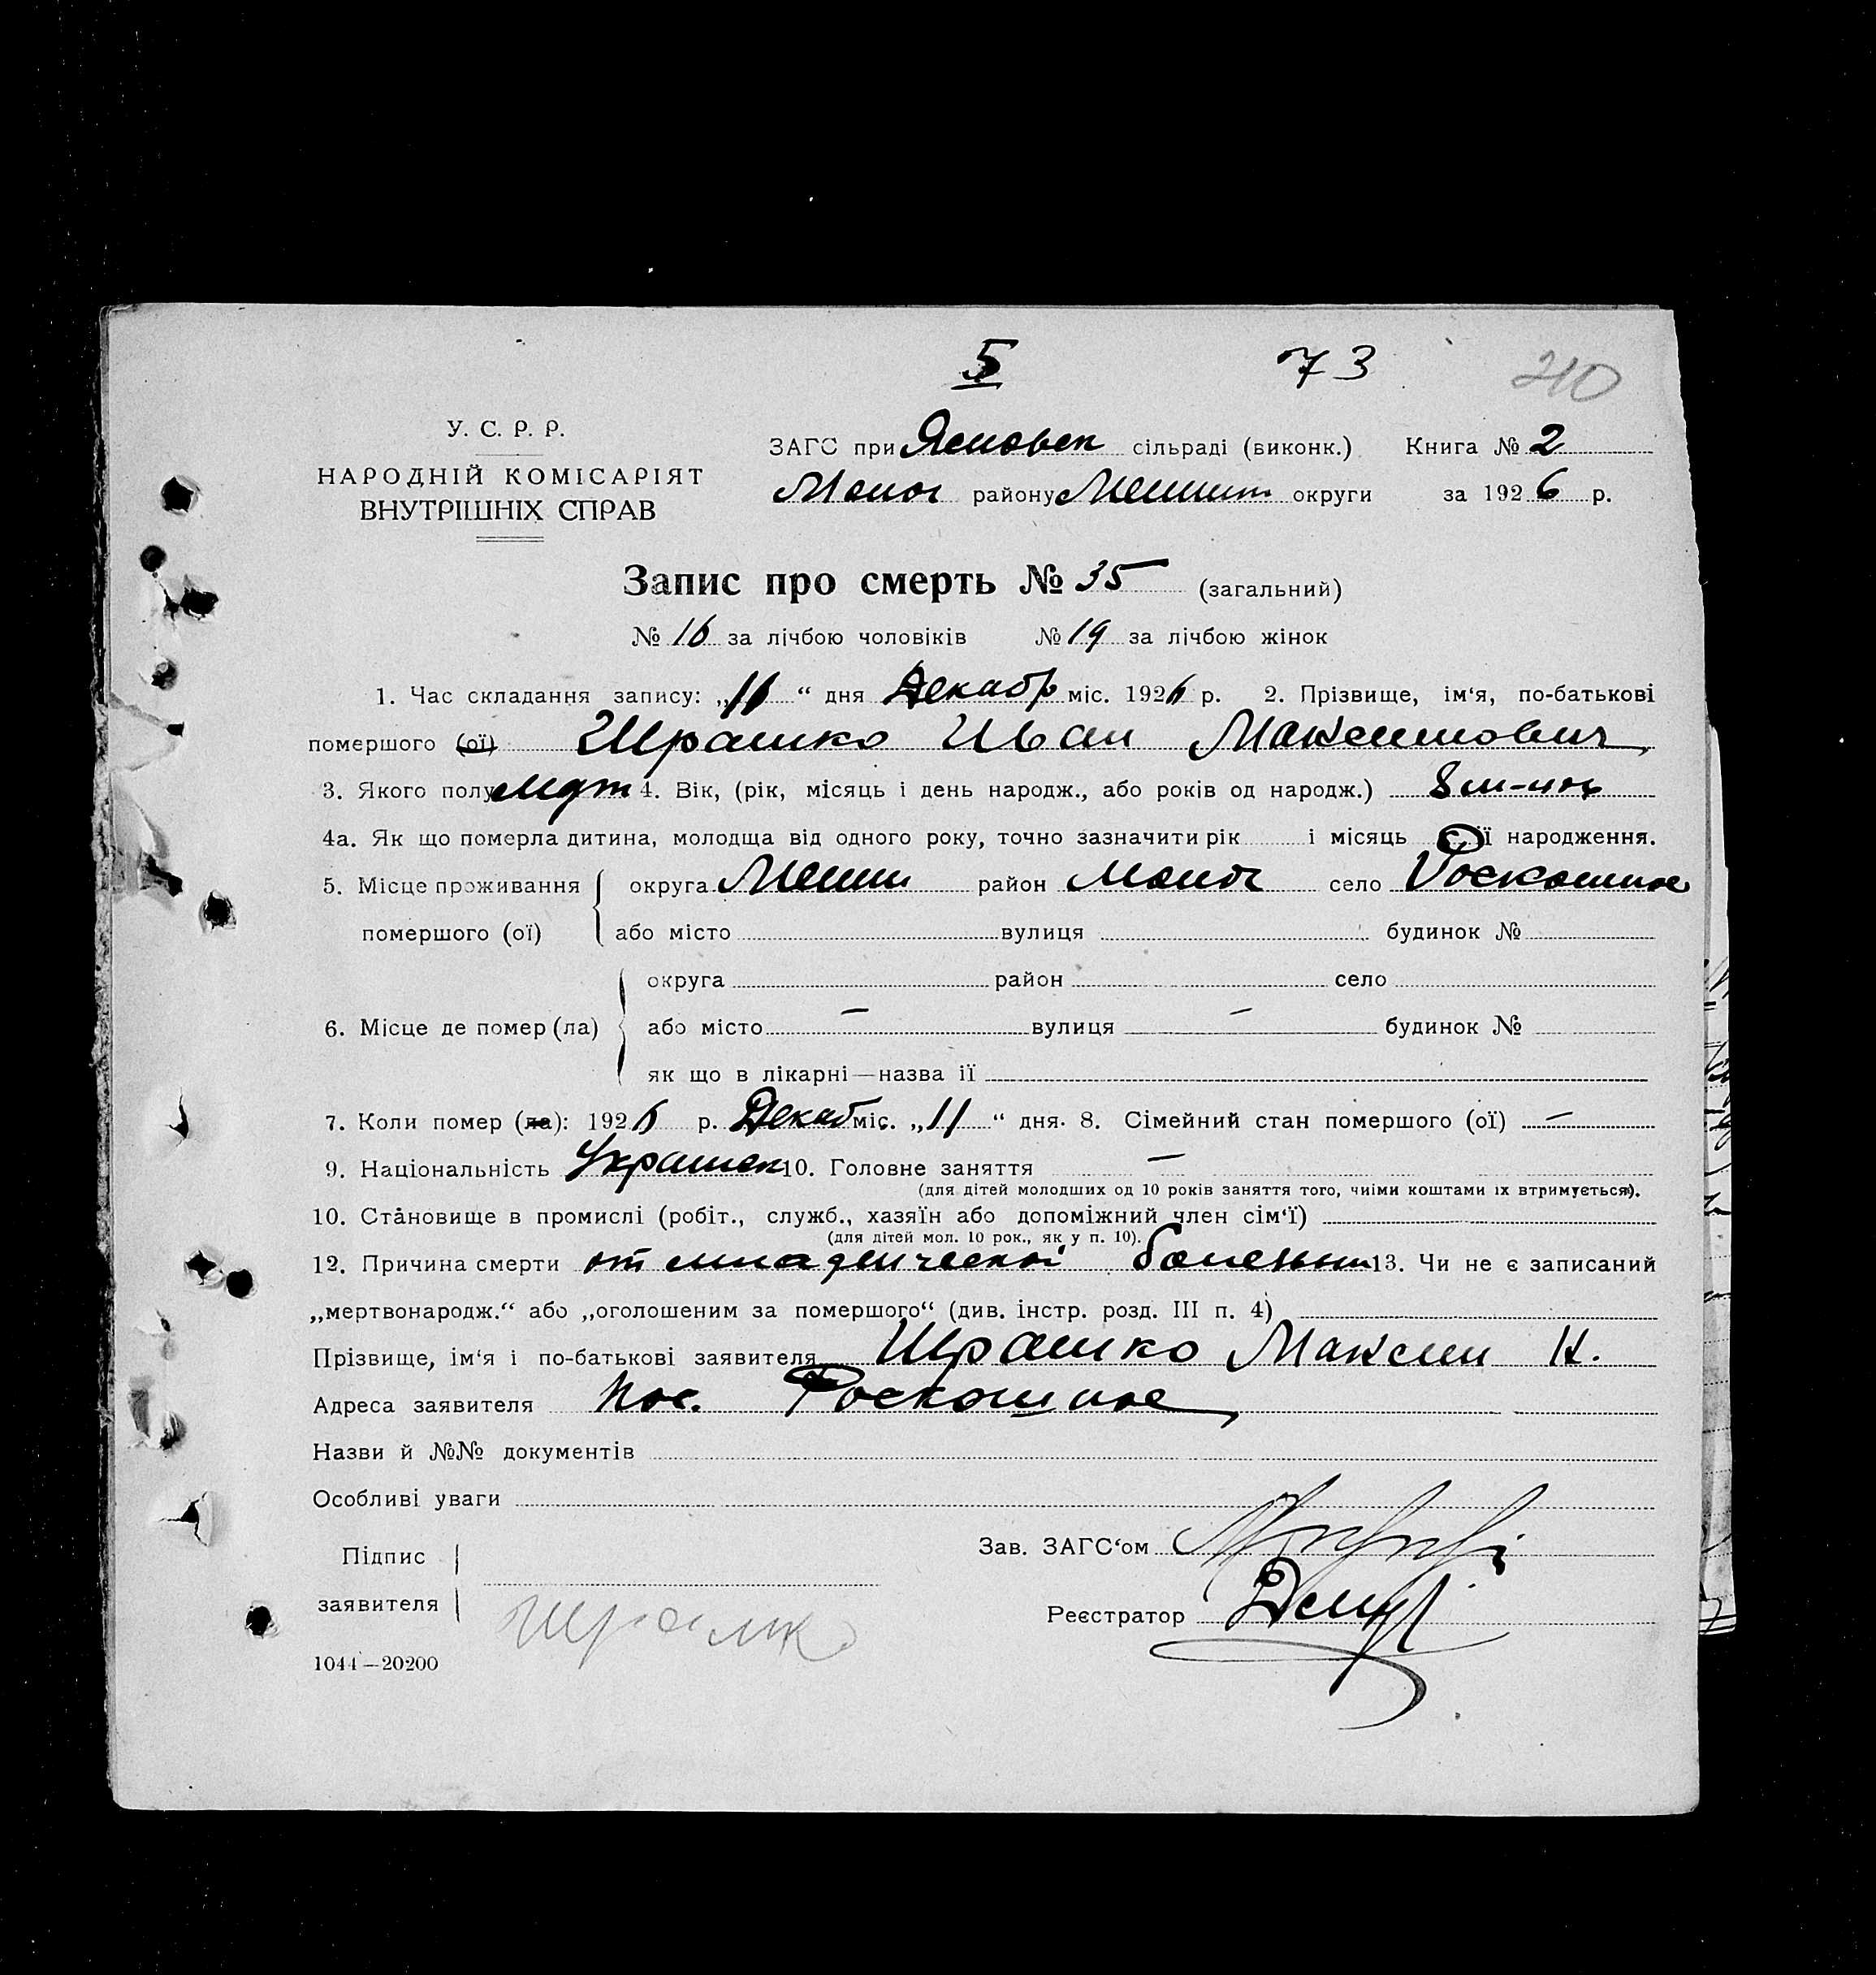 5 73 210
У. С. Р. Р.
НАРОДНІЙ КОМІСАРІЯТ
ВНУТРІШНІХ СПРАВ
ЗАГС при сільраді (виконк.) Книга № 2
району округи за 1926 р.
Запис про смерть № 35 (загальний)
№ 16 за лічбою чоловіків № 19 за лічбою жінок
1. Час складання запису: „11“ дня Декабр міс. 1926 р. 2. Прізвище, ім‘я, по-батькові
помершого (ої) Шрамко Иван Максимович
3. Якого полу 4. Вік, (рік, місяць і день народж., або років од народж.)
4а. Як що померла дитина, молодща від одного року, точно зазначити рік і місяць її народження.
5. Місце проживання округа район село Роскошное
помершого (ої) або місто вулиця будинок №
округа район село
6. Місце де помер (ла) або місто — вулиця — будинок №
як що в лікарні—назва ії
7. Коли помер (ла): 1926 р. Декаб міс. „11“ дня. 8. Сімейний стан помершого (ої) —
9. Національність Украинец 10. Головне заняття —
(для дітей молодших од 10 років заняття того, чиїми коштами іх втримується).
10. Становище в промислі (робіт., служб., хазяїн або допоміжний член сім‘ї)
(для дітей мол. 10 рок., як у п. 10).
12. Причина смерти от младенческой болезни 13. Чи не є записаний
„мертвонародж.“ або „оголошеним за помершого“ (див. інстр. розд. III п. 4)
Прізвище, ім‘я і по-батькові заявителя Шрамко Максим И.
Адреса заявителя пос. Роскошное
Назви й №№ документів
Особливі уваги
Підпис
заявителя Шрамко
Зав. ЗАГС‘ом
Реєстратор
1044—20200